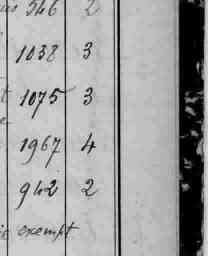 546 2
1038 3
1075 3
1967 4
942 2
exempt